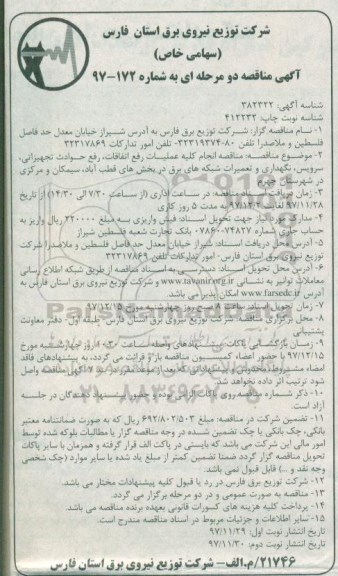 شرکت توزیع نیروی برق استان فارس
(سهامی خاص)
آگهی مناقصه دو مرحله ای به شماره ۱۷۲-۹۷
شناسه آگهی: ۳۸۲۳۲۲
شناسه نوبت چاپ: ۴۱۲۲۳۲
۱- نام مناقصه گزار: شرکت توزیع برق فارس به آدرس شیراز خیابان معدل حد فاصل
فلسطین و ملاصدرا تلفن ۸۰-۳۲۳۱۹۳۷۴ تلفن امور تدارکات ۳۲۳۱۷۸۶۹
۲- موضوع مناقصه: مناقصه انجام کلیه عملیات رفع اتفاقات، رفع حوادث تجهیزاتی،
سرویس، نگهداری و تعمیرات شبکه های برق در بخش های قطب آباد، سیمکان و مرکزی
در شهرستان جهرم
۳- زمان دریافت اسناد مناقصه: در ساعات اداری (از ساعت ۷/۳۰ الی ۱۴/۳۰) از تاریخ
۹۷/۱۱/۲۸ لغایت ۹۷/۱۲ به مدت ۵ روز کاری
۴- مدارک مورد نیاز جهت تحویل اسناد: فیش واریزی به مبلغ ۲۲۰۰۰۰ ریال واریز به
حساب جاری شماره ۷۸۶۰۰۷۴۸۲۷ بانک تجارت شعبه فلسطین شیراز
۵- آدرس محل دریافت اسناد: شیراز خیابان معدل حد فاصل فلسطین و ملاصدرا شرکت
توزیع نیروی برق استان فارس- امور تدارکات تلفن ۳۲۳۱۷۸۶۹
۶- آدرس محل تحویل اسناد: دسترسی به اسناد مناقصه از طریق شبکه اطلاع رسانی
معاملات توانیر به نشانی www.tavanir.org.ir و شرکت توزیع نیروی برق استان فارس به
آدرس www.farsedc.ir امکان پذیر می باشد.
۷- زمان تحویل اسناد: ساعت روز چهارشنبه مورخ ۹۷/۱۲/۱۵
۸- محل برگزاری مناقصه: شرکت توزیع نیروی برق استان فارس- طبقه اول- دفتر معاونت
پشتیبانی
۹- زمان بازگشایی پاکات پیشنهادهای واصله ساعت روز چهارشنبه مورخ
۹۷/۱۲/۱۵ با حضور اعضاء کمیسیون مناقصه باز و قرائت می گردد، به پیشنهادهای فاقد
امضاء، مشروط، مخدوش و پیشنهاداتی که بعد از موعد مقرر در بند ۷ آگهی مناقصه واصل
شود ترتیب اثر داده نخواهد شد.
۱۰- ذکر شماره مناقصه روی پاکات الزامی بوده و حضور پیشنهاد دهندگان در جلسه
آزاد است.
۱۱- تضمین شرکت در مناقصه: مبلغ ۶۹۲/۸۰۲/۵۰۳ ریال که به صورت ضمانتنامه معتبر
بانکی، چک بانکی یا چک تضمین شده در وجه مناقصه گزار یا مطالبات بلوکه شده توسط
امور مالی این شرکت می باشد که بایستی در پاکت الف قرار گرفته و همزمان با سایر پاکات
تحویل مناقصه گزار گردد ضمنا تضمین کمتر از مبلغ یاد شده یا سایر موارد (چک شخصی
وجه نقد و ...) قابل قبول نمی باشد.
۱۲- شرکت توزیع برق فارس در رد یا قبول کلیه پیشنهادات مختار می باشد.
۱۳- مناقصه به صورت عمومی و در دو مرحله برگزار می گردد.
۱۴- پرداخت کلیه هزینه های کسورات قانونی بعهده برنده مناقصه می باشد.
۱۵- سایر اطلاعات و جزئیات مربوط در اسناد مناقصه مندرج است.
تاریخ انتشار نوبت اول: ۹۷/۱۱/۲۹
تاریخ انتشار نوبت دوم: ۹۷/۱۱/۳۰
۲۱۷۴۶/م.الف- شرکت توزیع نیروی برق استان فارس